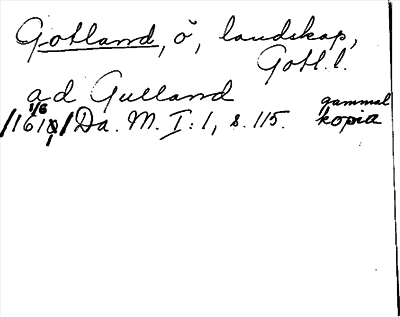 Gotland, ö, landskap,
Gotl. l.
ad Gulland
1/6 gammal
/1610/ Da. M. I: 1, s. 115. kopia